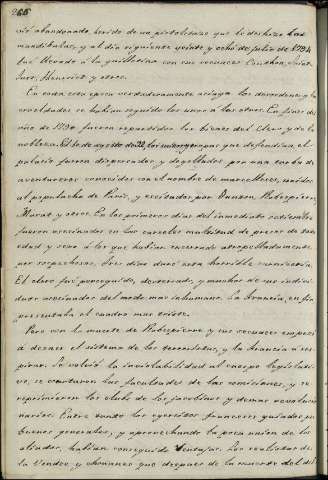 266
vió abandonado, herido de un pistoletazo que le deshizo las
mandíbulas, y al día siguiente veinte y ocho de julio de 1794
fué llevado á la guillotina con sus secuaces Couthon, Saint
Just, Henriot y otros.
En toda esta época verdaderamente aciaga los desordenes y las
crueldades se habían seguido los unos a los otros. En fines del
año de 1790 fueron repartidos los bienes del Clero y de la
nobleza. El de agosto de 92, las tropas que defendían el
palacio fueron dispersadas y degolladas por una turba de
aventureros conocidos con el nombre de marselleses, unidos
al populacho de Paris, y excitados por Danton, Robespierre,
Marat y otros. En los primeros dias del inmediato setiembre
fueron asesinados en las carceles multitud de presos de toda
edad y sexo á los que habían encerrado atropelladamente
por sospechosos. Tres dias duró esta horrible carnicería.
El clero fué perseguido, desterrado, y muchos de sus indivi-
duos asesinados del modo mas inhumano. La Francia, en fin
presentaba el cuadro mas triste.
Pero con la muerte de Robespierre y sus secuaces empezó
á decaer el sistema de los terroristas, y la Francia á res-
pirar. Se volvió la inviolabilidad al cuerpo legislati-
vo, se coartaron las facultades de las comisiones, y se
reprimieron los clubs de los jacobinos y demas revolucio
narios. Entre tanto los ejercitos franceses guiados por
buenos generales, y aprovechando la poca union de los
aliados, habían conseguido ventajas. Los realistas de
la Vendée y chouanes que despues de la muerte del